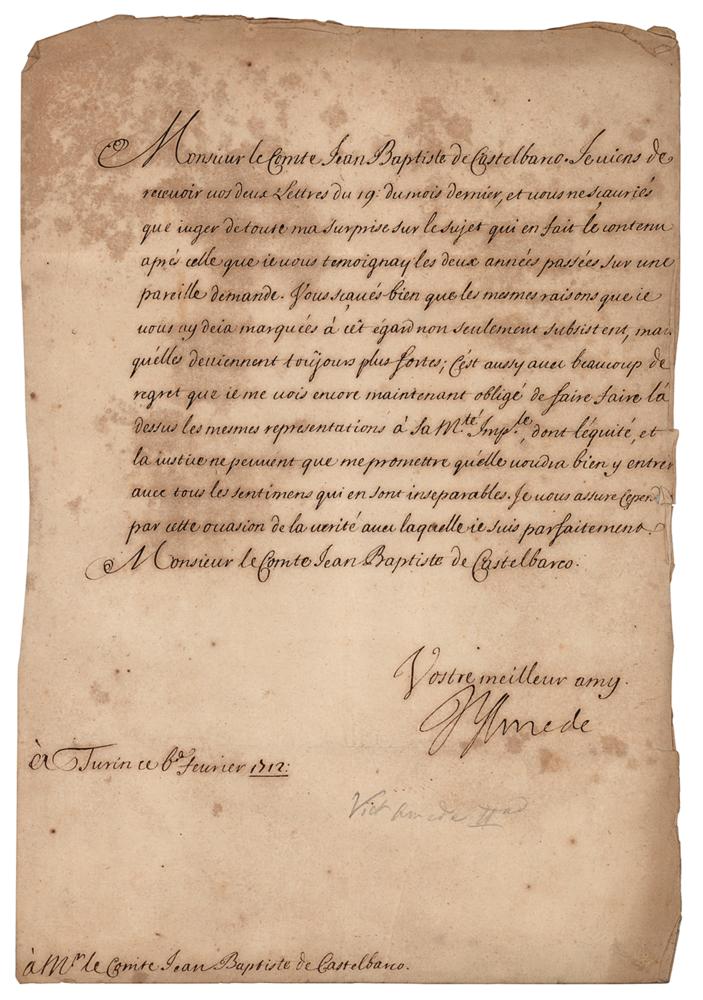 Monsieur le Comte Jean Baptiste de Castelbarco. Je viens de
recevoir vos deux Lettres du 19: du mois dernier, et vous ne scauriés
que iuger de toute ma surprise sur le sujet qui en fait le contenu
aprés celle que ie vous temoignay les deux années passées sur une
pareille demande. Vous scaués bien que les mesmes raisons que ie
vous ay deia marquées à cét égard non seulement subsistent, mai
qu'élles deviennent toûjours plus fortes; C'ést aussy avec beaucoup de
regret que ie me vois encore maintenant obligé de faire faire là
dessus les mesmes representations à Sa Mté Imple, dont l'équité, et
la iustice ne peuvent que me promettre qu'elle voudra bien y entrer
avec tous les sentimens qui en sont inseparables. Je vous assure Cepend
par cette occasion de la verité avec laquelle ie suis parfaitement.
Monsieur le Comte Jean Baptiste de Castelbarco.
Vostre meilleur amy.
V Amede
à Turin ce 6e Fevrier 1712:
Vict Amede IId
à Mr le Comte Jean Baptiste de Castelbarco.